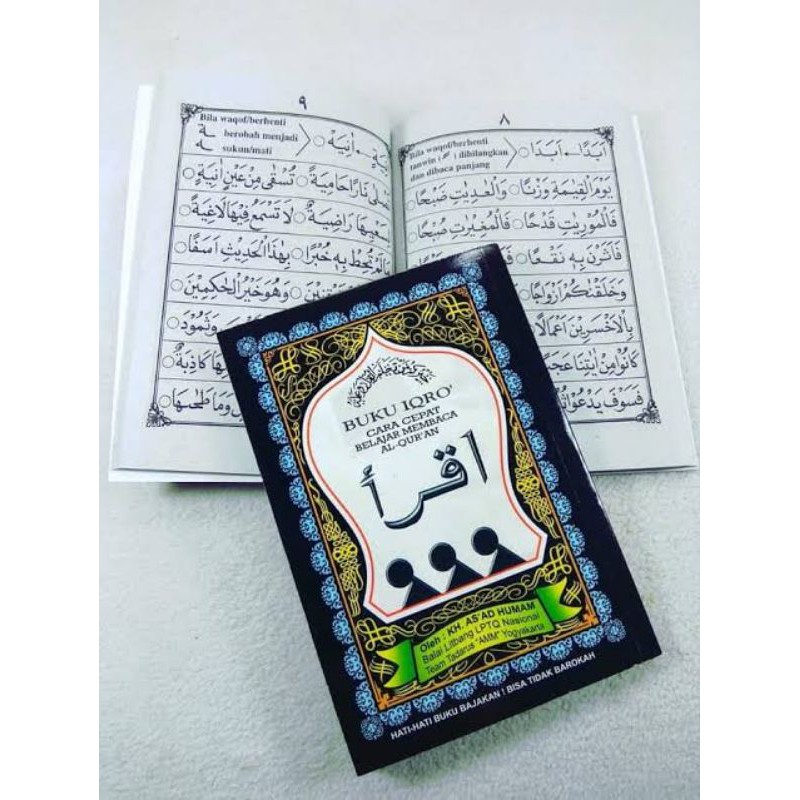 ٩
Bila waqof/berhenti
berobah menjadi
sukun/mati
ـِيَةٍ ← اٰنِيَهْ
تَصْلٰى نَارًا حَامِيَةً ○ تُسْقٰى مِنْ عَيْنٍ اٰنِيَةٍ
لِسَعْيِهَا رَاضِيَةٌ ○ لَا تَسْمَعُ فِيْهَا لَاغِيَةً
مَالَمْ تُحِطْ بِهٖ خُبْرًا ○ بِهٰذَا الْحَدِيْثِ اَسَفًا
وَهُوَ خَيْرُ الْحٰكِمِيْنَ
وَثَمُوْدَ
كَاذِبَةٌ
وَمَا طَحٰىهَا
٨
Bila waqof/berhenti
tanwin ( ـً ) dibilangkan
dan dibaca panjang
اَبَدًا ← اَبَدَا
يَوْمَ الْقِيٰمَةِ وَزْنًا ○ وَالْعٰدِيٰتِ ضَبْحًا
فَالْمُوْرِيٰتِ قَدْحًا ○ فَالْمُغِيْرٰتِ صُبْحًا
فَاَثَرْنَ بِهٖ نَقْعًا
وَخَلَقْنٰكُمْ اَزْوَاجًا
بِالْاَخْسَرِيْنَ اَعْمَالًا
كَانُوْا مِنْ اٰيٰتِنَا عَجَبًا
فَسَوْفَ يَدْعُوْا ثُبُوْرًا
BUKU IQRO'
CARA CEPAT
BELAJAR MEMBACA
AL-QUR'AN
اقرأ
Oleh : KH. AS'AD HUMAM
Balai Litbang LPTQ Nasional
Team Tadarus "AMM" Yogyakarta
HATI-HATI BUKU BAJAKAN ! BISA TIDAK BAROKAH